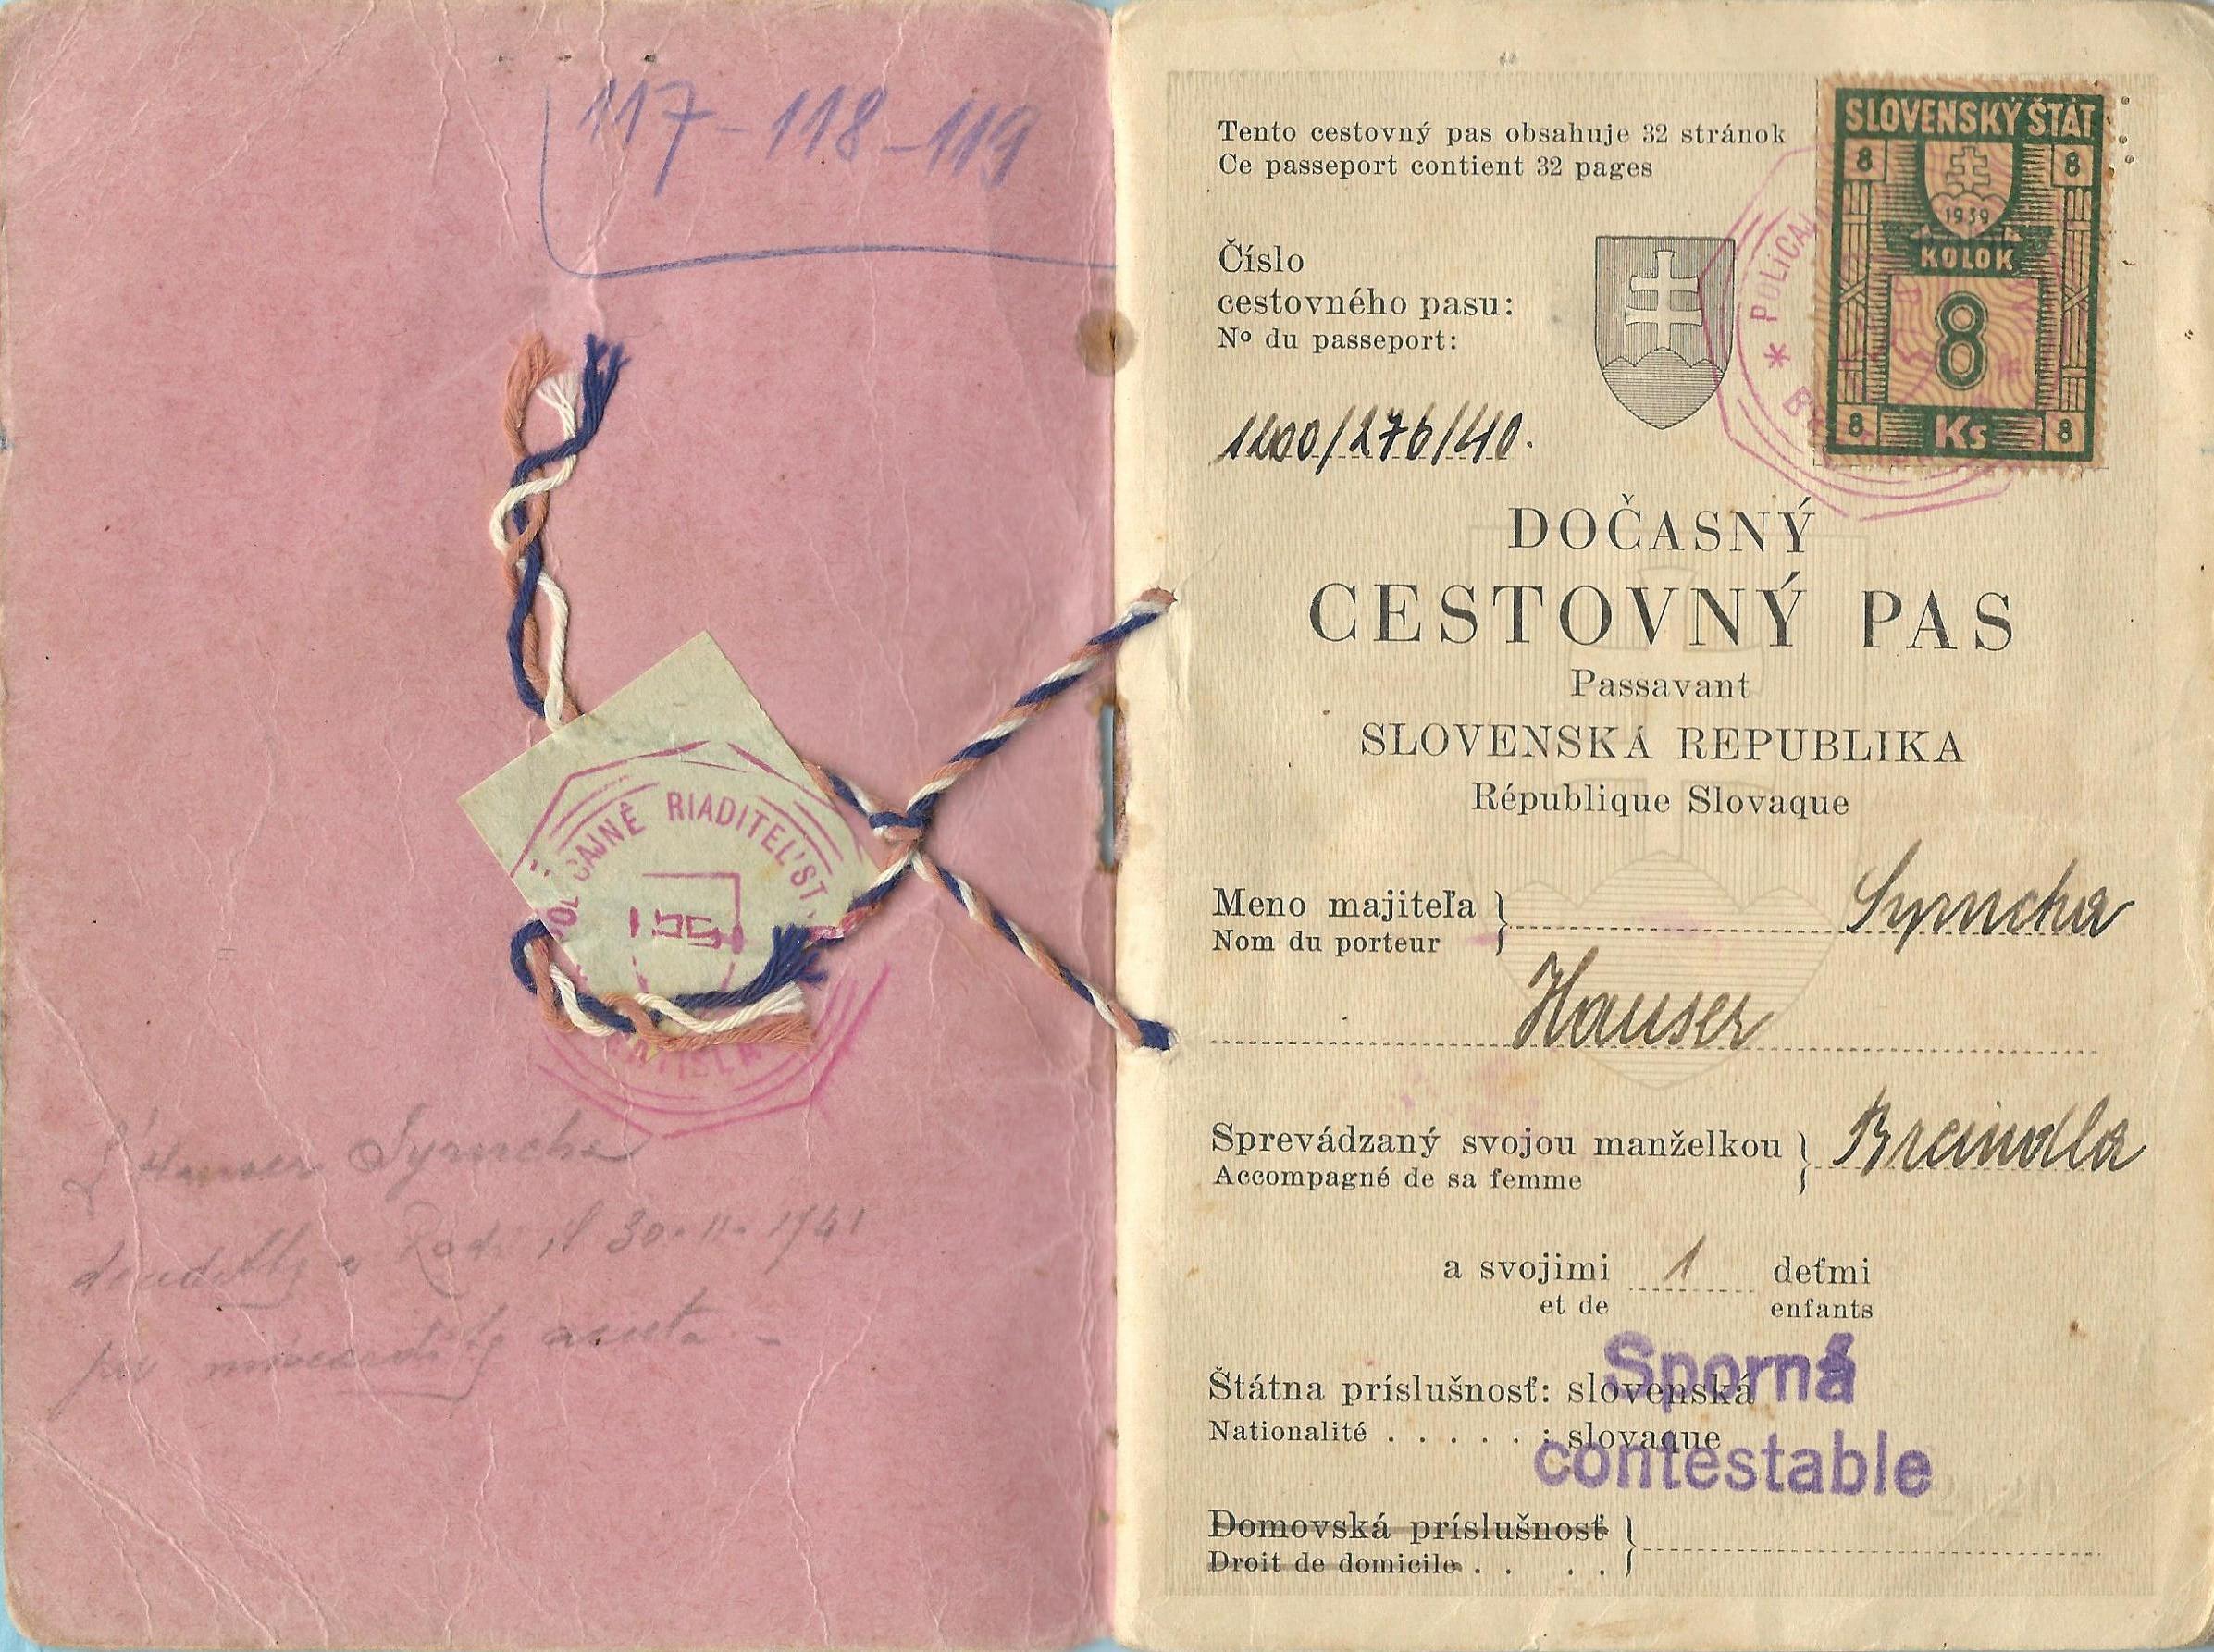 117-118-119
POLICAJNÉ RIADITEĽST
Hauser Symcha
30-11-1941
Tento cestovný pas obsahuje 32 stránok
Ce passeport contient 32 pages
SLOVENSKÝ ŠTÁT
8 8
1939
KOLOK
8
8 Ks 8
POLICAJ
Číslo
cestovného pasu:
Nº du passeport:
1200/276/40.
DOČASNÝ
CESTOVNÝ PAS
Passavant
SLOVENSKÁ REPUBLIKA
République Slovaque
Meno majiteľa } Symcha
Nom du porteur
Hauser
Sprevádzaný svojou manželkou } Breindla
Accompagné de sa femme
a svojimi 1 deťmi
et de enfants
Sporná
Štátna príslušnosť: slovenská
Nationalité . . . . . : slovaque
contestable
Domovská príslušnosť }
Droit de domicile . . . .